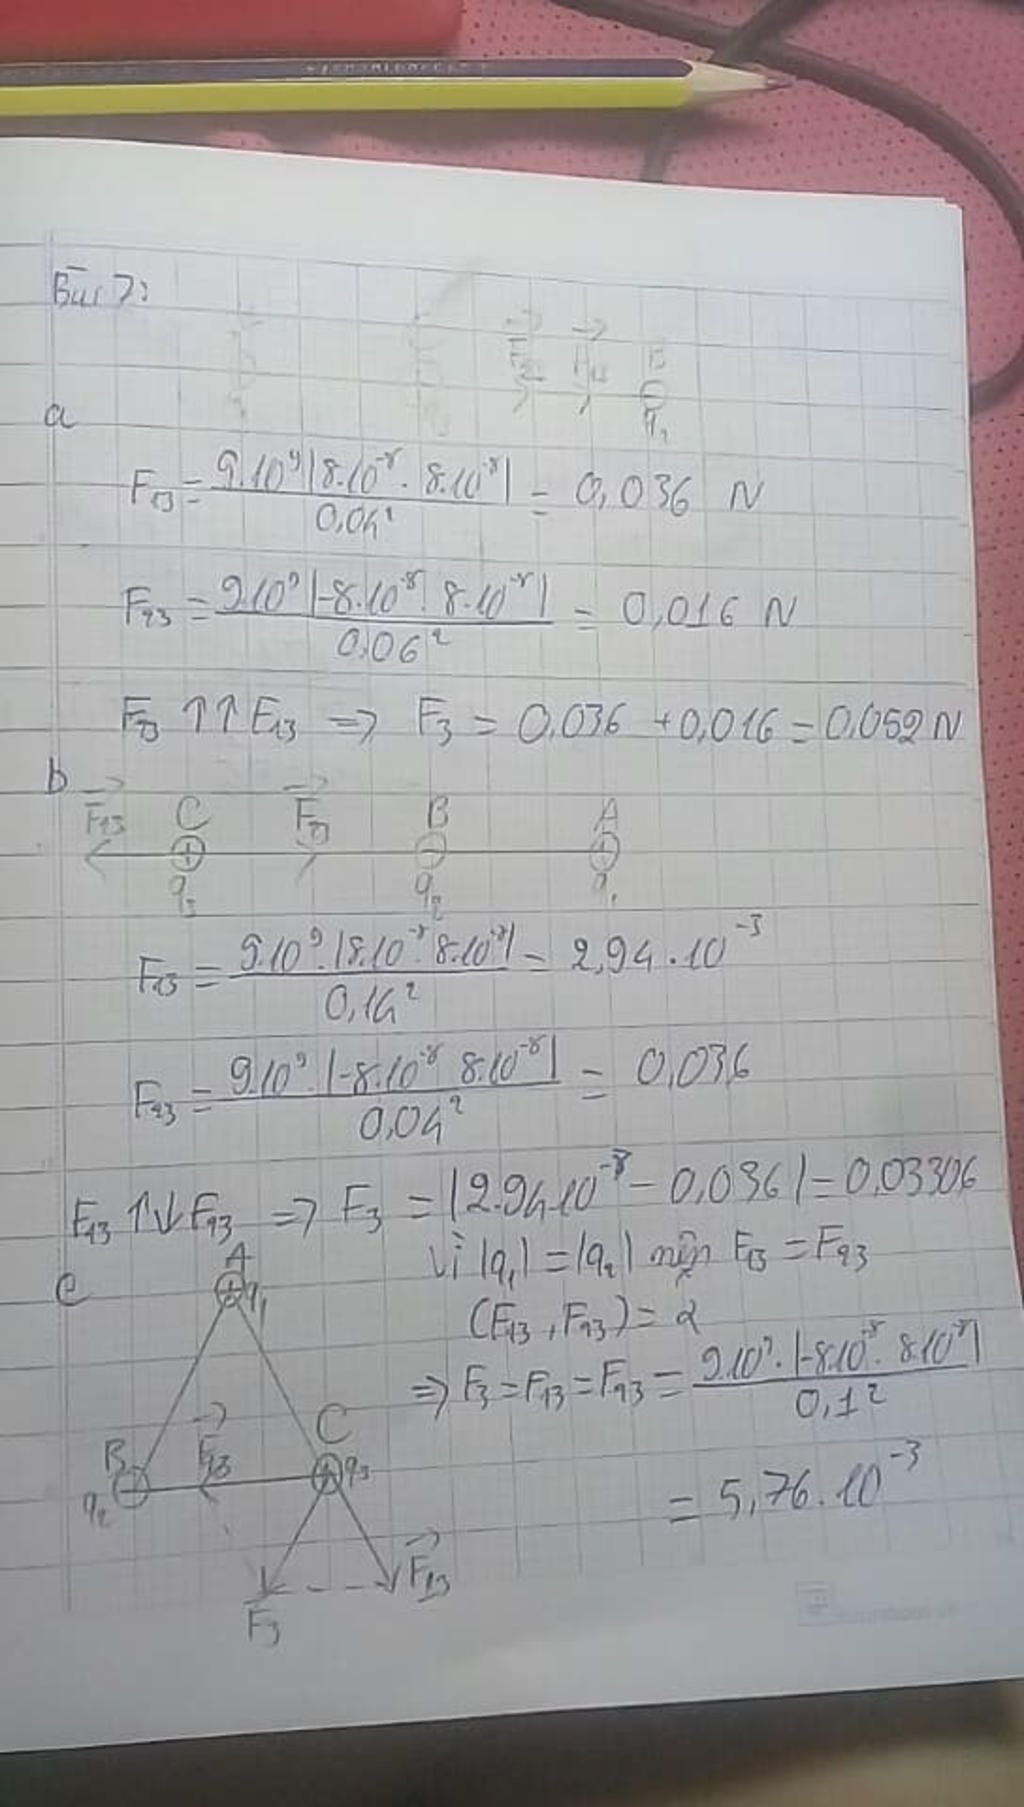 Bài 7:
F₁₃
B
q₂
a
F₁₃ = 9.10⁹|8.10⁻⁸. 8.10⁻⁸| / 0,04² = 0,036 N
F₂₃ = 9.10⁹|-8.10⁻⁸. 8.10⁻⁸| / 0,06² = 0,016 N
F₂₃ ↑↑ F₁₃ => F₃ = 0,036 + 0,016 = 0,052 N
b
F₁₃ C F₂₃ B A
q₃ q₂ q₁
F₁₃ = 9.10⁹.|8.10⁻⁸ 8.10⁻⁸| / 0,14² = 2,94.10⁻³
F₂₃ = 9.10⁹.|-8.10⁻⁸ 8.10⁻⁸| / 0,04² = 0,036
F₁₃ ↑↓ F₂₃ => F₃ = |2.94.10⁻³ - 0,036| = 0,03306
c
A
q₁
Vì |q₁| = |q₂| nên F₁₃ = F₂₃
(F₁₃, F₂₃) = α
=> F₃ = F₁₃ = F₂₃ = 9.10⁹.|-8.10⁻⁸. 8.10⁻⁸| / 0,1²
= 5,76.10⁻³
B F₂₃ C
q₂ q₃
F₃ F₁₃